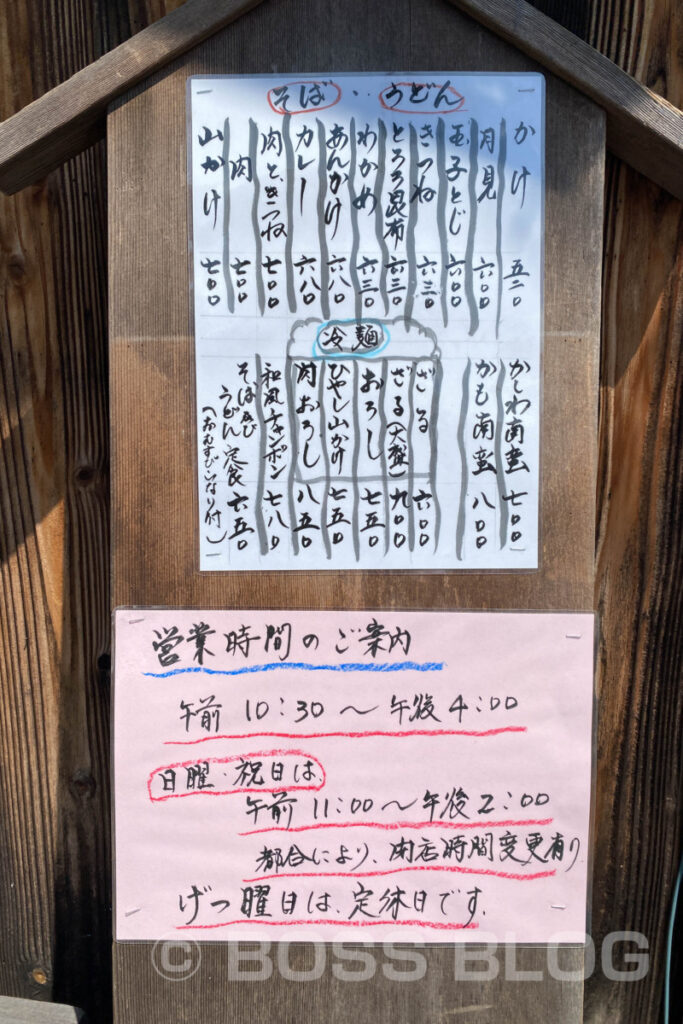 そば・・うどん
かけ 五二〇
月見 六〇〇
玉子とじ 六〇〇
きつね 六三〇
とろろ昆布 六三〇
わかめ 六三〇
あんかけ 六八〇
カレー 六八〇
肉ときつね 七〇〇
肉 七〇〇
山かけ 七〇〇
かしわ南蛮 七〇〇
かも南蛮 八〇〇
冷麺
ざる 六〇〇
ざる(大盤) 九〇〇
おろし 七五〇
ひやし山かけ 七五〇
肉おろし 八五〇
和風チャンポン 七八〇
そば及び
うどん定食 六五〇
(おむすびいなり付)
営業時間のご案内
午前 10:30〜午後4:00
日曜・祝日は
午前 11:00〜午後2:00
都合により、閉店時間変更有り
げつ曜日は、定休日です。
© BOSS BLOG